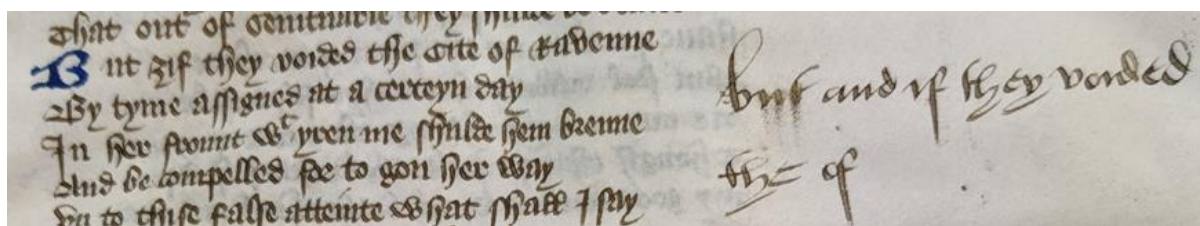 That out of seruituude they shulde be
But ȝif they voided the Cite of Ravenne
By tyme assigned at a certeyn day
In her frount wt yren me shulde hem brenne
And be compelled for to gon her way
vn to thise false atteinte what shall I say
but and if they voided
the of